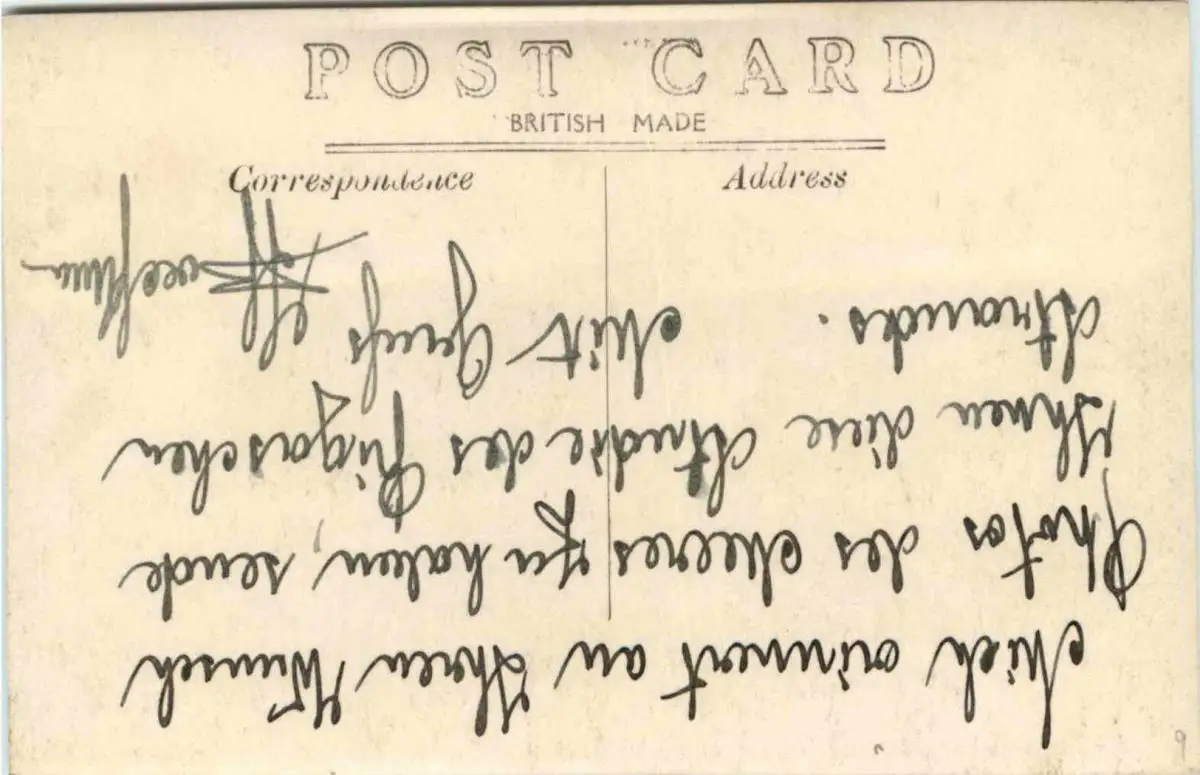 POST CARD
BRITISH MADE
Correspondence
Address
Mich erinnert an Ihren Wunsch
Photos des Meeres zu haben, sende
Ihnen diese Studie des Rigaschen
Strandes.
Mit Gruß
9